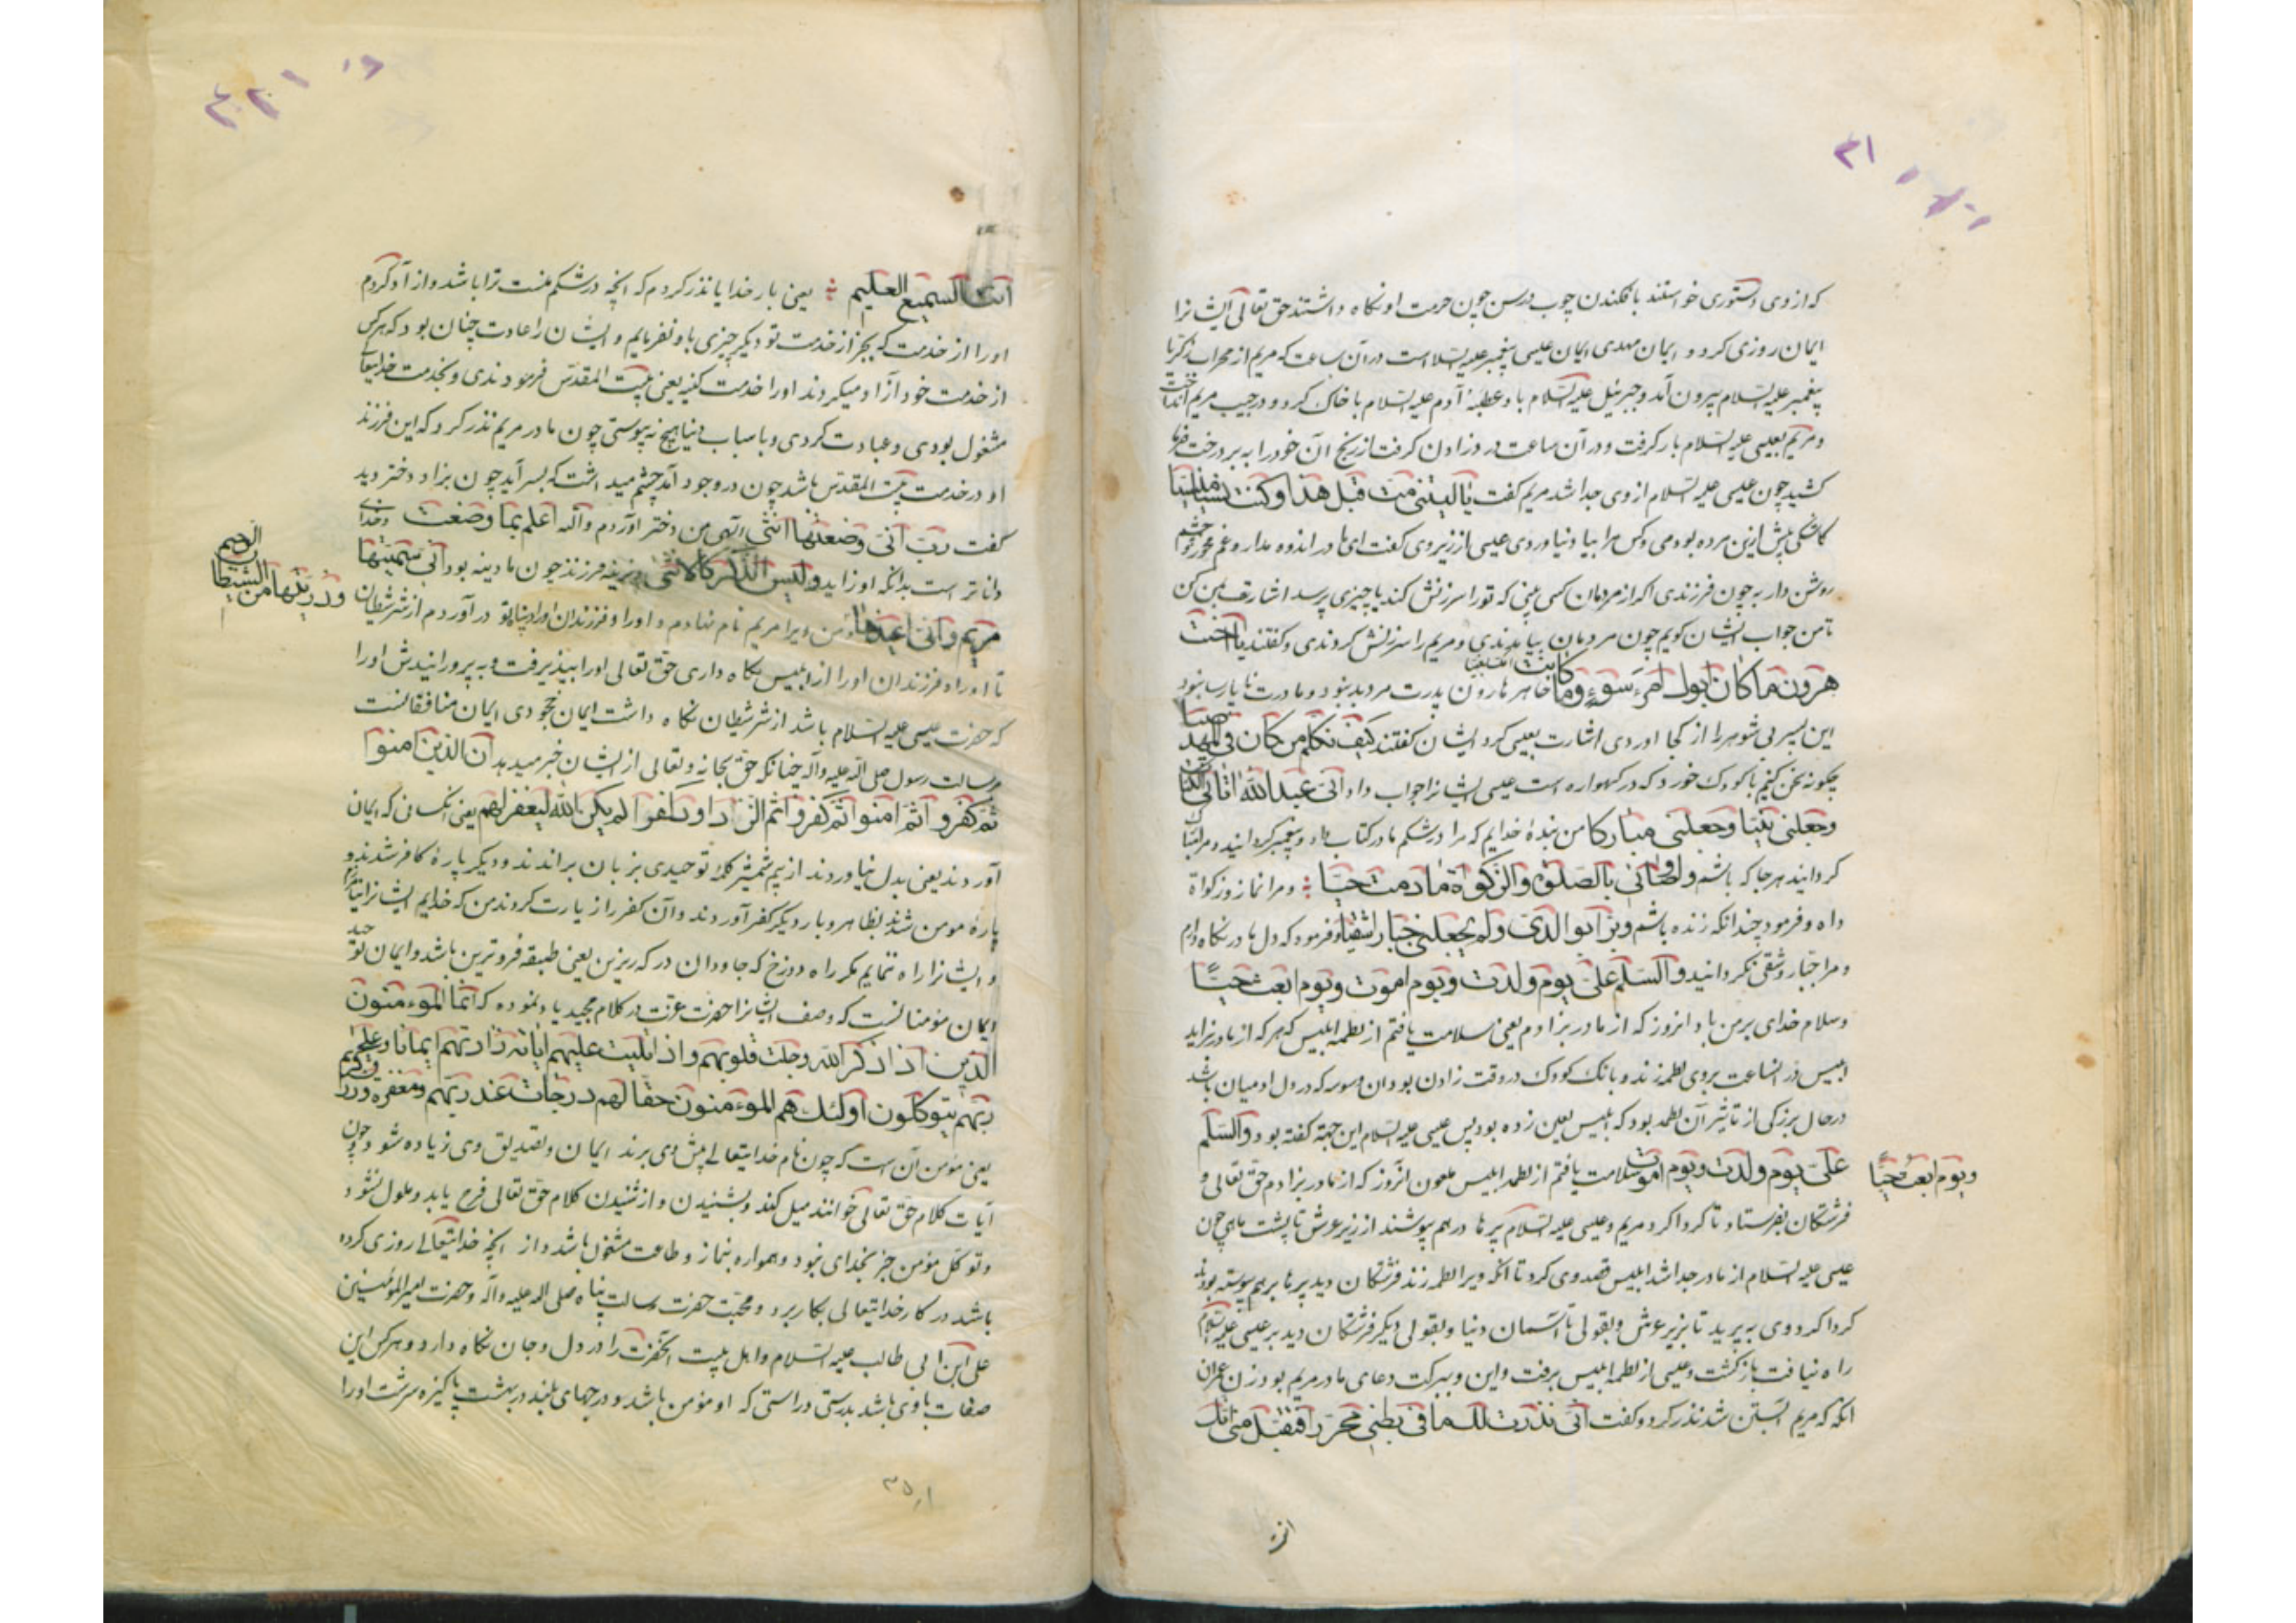 که از وی دستوری خواستند بافکندن چوب و رسن چون حرمت او نکاه داشتند حق تعالی ایشانرا
ایمان روزی کرد و ایمان مهدی ایمان عیسی پیغمبر علیه السلا است در آن ساعت که مریم از محراب زکریا
پیغمبر علیه السلام بیرون آمد و جبرئیل علیه السلام باد عطسه آدم علیه السلام با خاک کرد و در جیب مریم انداخت
و مریم بعیسی علیه السلام بار کرفت و در آن ساعت درد زادن کرفت از رنج آن خود را به بر درخت خرما
کشید چون عیسی علیه السلام از وی جدا شد مریم کفت یا لیتنی مت قبل هذا و کنت نسیا منسیا
کاشکی پیش ازین مرده بودمی و کس مرا بیاد نیاوردی عیسی از زیر وی کفت ای مادر اندوه مدار و غم مخور و چشم
روشن دار به چون فرزندی اکر از مردمان کسی بینی که تو را سرزنش کند یا چیزی پرسد اشارت بمن کن
تا من جواب ایشان کویم چون مردمان بیامدندی و مریم را سرزنش کردندی و کفتند یا اخت
هرون ما کان ابوک امرء سوء و ما کانت امک بغیا خاهر هارون پدرت مرد بد نبود و مادرت نا پارسا نبود
این پسر بی شوهر را از کجا اوردی اشارت بعیسی کرد ایشان کفتند کیف نکلم من کان فی المهد صبیا
چکونه سخن کنیم با کودک خورد که در کهواره است عیسی ایشانرا جواب داد انی عبد الله اتانی الکتاب
و جعلنی نبیا و جعلنی مبارکا من بندهٔ خدایم که مرا در شکم مادر کتاب داد و پیغمبر کردانید و مرا
کردانید هر جا که باشم و اوصانی بالصلوة و الزکوة ما دمت حیا و مرا نماز و زکواة
داه و فرمود چندانکه زنده باشم و برا بوالدتی و لم یجعلنی جبارا شقیا و فرمود که دل مادر نکاه دارم
و مرا جبار و شقی نکردانید و السلم علی یوم ولدت و یوم اموت و یوم ابعث حیا
و سلام خدای بر من باد انروز که از مادر بزادم یعنی سلامت یافتم از لطمه ابلیس که هر که از مادر بزاید
ابلیس در انساعت بروی لطمه زند و بانک کودک در وقت زادن بود ان وسوسه که در دل ادمیان باشد
در حال بزرکی از تاثیر آن لطمه بود که ابلیس لعین زده بود پس عیسی علیه السلام این جهة کفته بود و السلم
علی یوم ولدت و یوم اموت سلامت یافتم از لطمه ابلیس ملعون انروز که از مادر بزادم حق تعالی و
و یوم ابعث حیا
فرشتکان بفرستاد تا کردا کرد مریم و عیسی علیه السلام پرها در هم پوشند از زیر عرش تا پشت ماهی چون
عیسی علیه السلام از مادر جدا شد ابلیس قصد وی کرد تا انکه ویرا لطمه زند فرشتکان دید پرها بر هم پیوسته بودند
کردا کرد وی به پرید تا بزیر عرش و بقولی تا آسمان دنیا و بقولی دیکر فرشتکان دید بر عیسی علیه السلام
راه نیافت باز کشت و عیسی از لطمه ابلیس برفت و این و ببرکت دعای مادر مریم بود زن عمران
انکه که مریم ابستن شد نذر کرد و کفت انی نذرت لک ما فی بطنی محررا فتقبل منی انک
انت السمیع العلیم یعنی بار خدایا نذر کردم که انچه در شکم منست ترا باشد و از آد کردم
او را از خدمت که بجز از خدمت تو دیکر چیزی باو نفرمایم و ایشان را عادت چنان بود که هر کس
از خدمت خود آزاد میکردند او را خدمت کنیه یعنی بیت المقدس فرمودندی و بخدمت خدایتعالی
مشغول بودی و عبادت کردی و باسباب دنیا هیچ نه پیوستی چون مادر مریم نذر کرد که این فرزند
او در خدمت بیت المقدس باشد چون در وجود آمد چشم میداشت که پسر آید چون بزاد دختر دید
کفت رب انی وضعتها انثی الهی من دختر اوردم و الله اعلم بما وضعت و خدای
داناتر است بدانکه او زاید و لیس الذکر کالانثی و نرینه فرزند چون مادینه بود انی سمیتها
مریم و انی اعیذها و من ویرا مریم نام نهادم و او را و فرزندان او را در پناه تو در آوردم از شر شیطان
و ذریتها من الشیطان الرجیم
تا او را و فرزندان او را از ابلیس نکاه داری حق تعالی او را بپذیرفت و به پرورانیدش او را
که حضرت عیسی علیه السلام باشد از شر شیطان نکاه داشت ایمان جحودی ایمان منافقانست
رسالت رسول صلی الله علیه و آله چنانکه حق سبحانه و تعالی از ایشان خبر میدهد ان الذین امنوا
ثم کفروا ثم امنوا ثم کفروا ثم ازدادوا کفرا لم یکن الله لیغفر لهم یعنی انکسانی که ایمان
آوردند یعنی بدل نیاوردند از بیم شمشیر کلمه توحیدی بزبان براندند و دیکر پارهٔ کافر شدند و
پارهٔ مومن شدند بظاهر و بار دیکر کفر آوردند و آن کفر را زیارت کردند من که خدایم ایشانرا نیامرزم
و ایشانرا راه ننمایم مکر راه دوزخ که جاودان در که زیرین یعنی طبقه فروترین باشد و ایمان توحید
ایمان مؤمنانست که وصف ایشانرا حضرت عزت در کلام مجید یاد نموده که انما المؤمنون
الذین اذا ذکر الله وجلت قلوبهم و اذا تلیت علیهم ایاته زادتهم ایمانا و علی
ربهم یتوکلون اولئک هم المؤمنون حقا لهم درجات عند ربهم و مغفرة و رزق کریم
یعنی مؤمن آن است که چون نام خدایتعالی پیش وی برند ایمان و تصدیق وی زیاده شود و چون
آیات کلام حق تعالی خوانند میل کند و بشنیدن و از شنیدن کلام حق تعالی فرح یابد و ملول نشود
و توکل مؤمن جز بخدای نبود و همواره بنماز و طاعت مشغول باشد و از انچه خدایتعالی روزی کرده
باشد در کار خدایتعالی بکار برد و محبت حضرت رسالت پناه صلی الله علیه و آله و حضرت امیر المؤمنین
علی ابن ابی طالب علیه السلام و اهل بیت آنحضرت را در دل و جان نکاه دارد و هر کس این
صفات با وی باشد بدرستی و راستی که او مؤمن باشد و درجهای بلند در بهشت پاکیزه سرشت او را